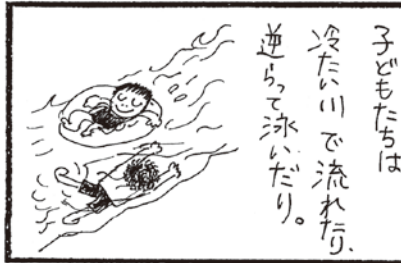 子どもたちは
冷たい川で流れたり、
逆らって泳いだり。